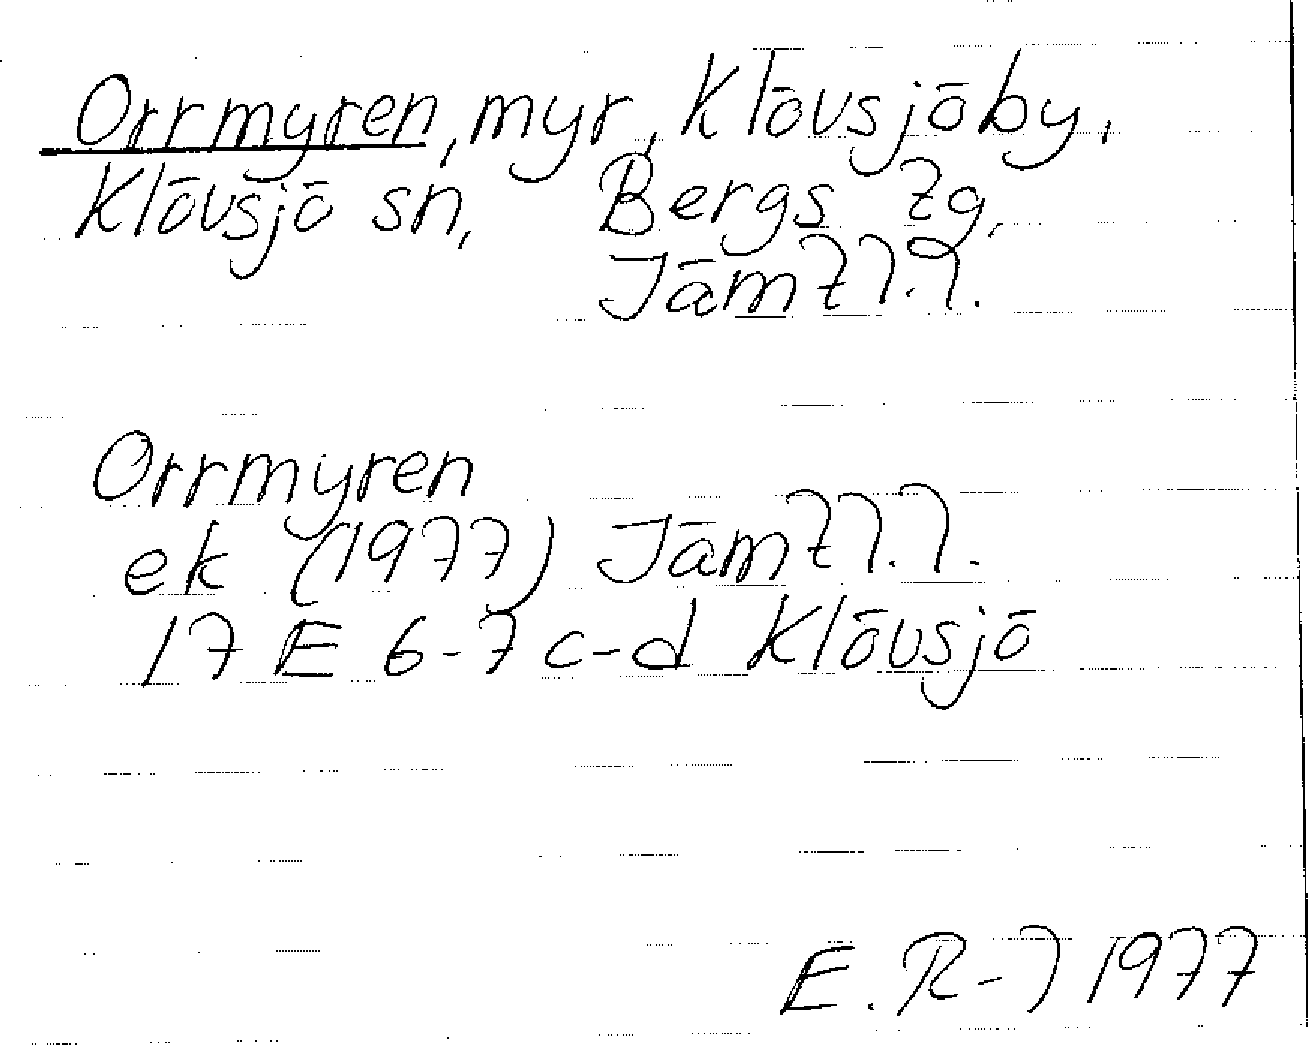 Orrmyren, myr, Klövsjöby,
Klövsjö sn, Bergs tg,
Jämtl.l.
Orrmyren
ek (1977) Jämtl.l.
17 E 6-7 c-d Klövsjö
E. R-l 1977